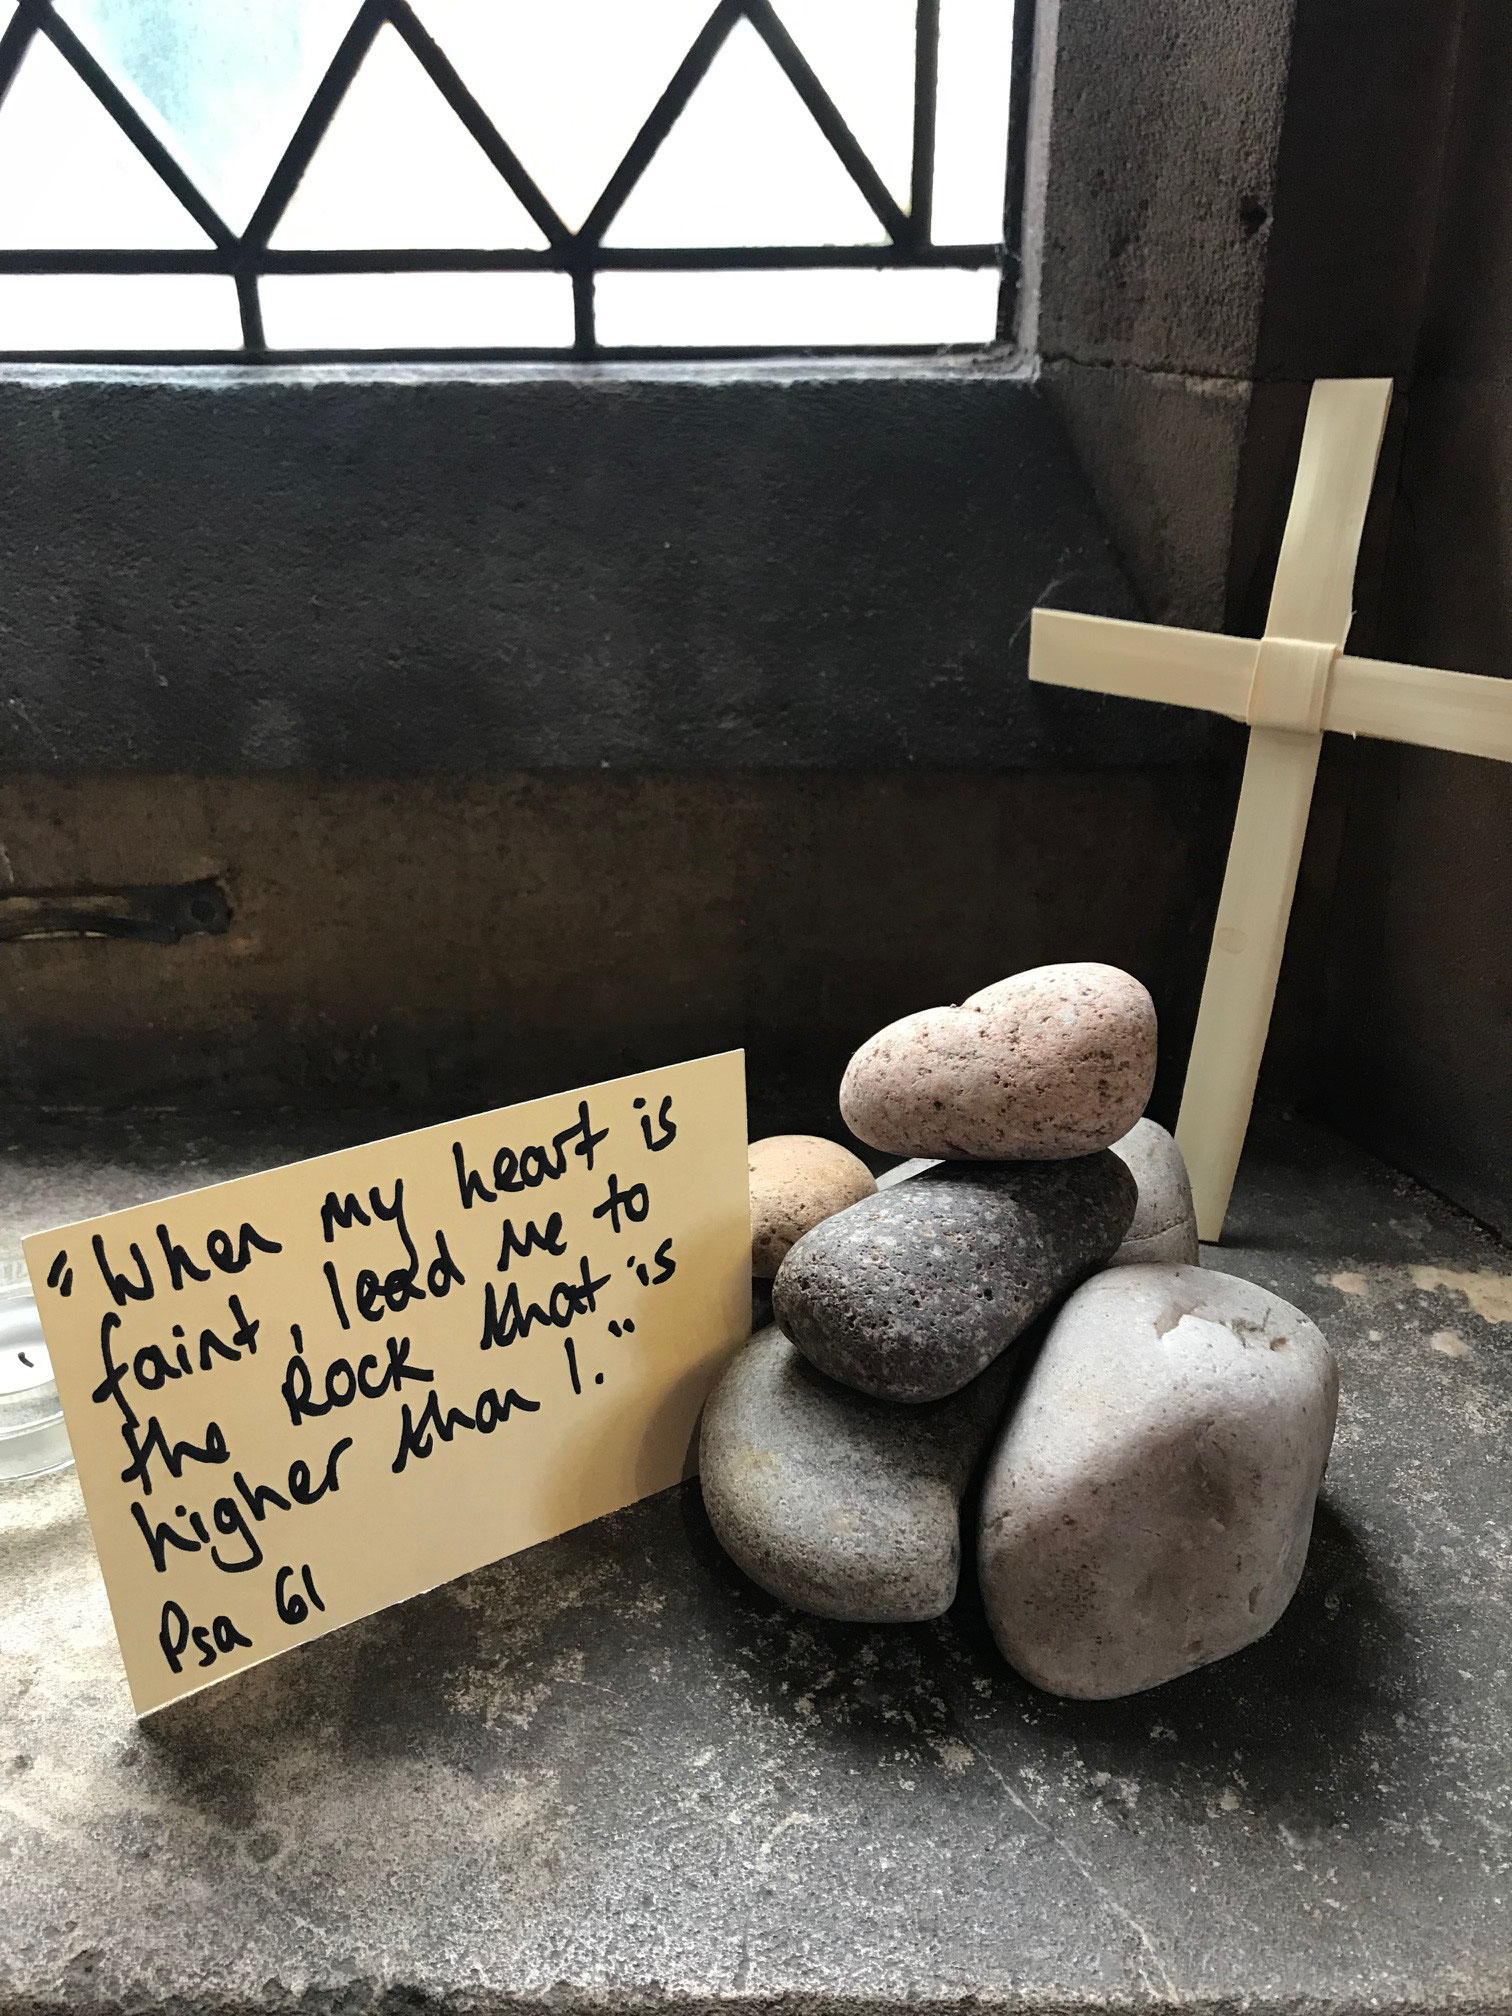 "When my heart is
faint, lead me to
the Rock that is
higher than I."
Psa 61